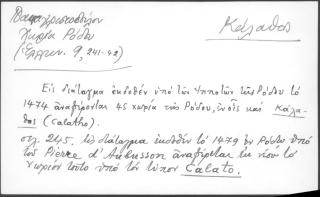 Παπαχριστοδούλου
Χωρία Ρόδου
9, 241-42)
Κάλαθος
Εἰς διάταγμα ἐκδοθὲν ὑπὸ τῶν Ἱπποτῶν τῆς Ρόδου τὸ
1474 ἀναφέρονται 45 χωρία τῆς Ρόδου, ἐν οἷς καὶ Κάλα-
θος (Calatho).
σελ. 245, εἰς διάταγμα ἐκδοθὲν τὸ 1479 ἐν Ρόδῳ ὑπὸ
τοῦ Pierre d'Aubusson ἀναφέρεται ἐκ νέου τὸ
χωρίον τοῦτο ὑπὸ τὸν τύπον Calato.